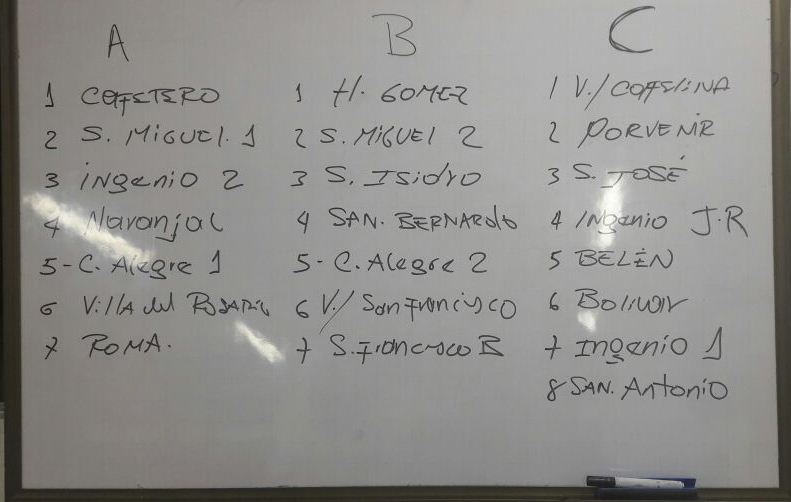 A
1 CAFETERO
2 S. MIGUEL. 1
3 ingenio 2
4 Naranjal
5- C. Alegre 1
6 Villa del ROSARIO
7 ROMA.
B
1 H. GOMEZ
2 S. MIGUEL 2
3 S. ISidro
4 SAN. BERNARdo
5- C. Alegre 2
6 V./ San Francisco
7 S. Francisco B
C
1 V./ CAFELINA
2 PORVENIR
3 S. JOSÉ
4 INgenio J.R
5 BELÉN
6 Bolivar
7 Ingenio 1
8 SAN. Antonio